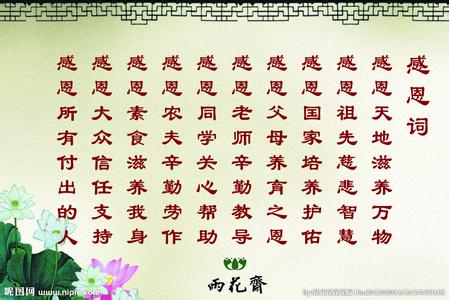 感恩词
感恩天地滋养万物
感恩祖先慈悲智慧
感恩国家培养护佑
感恩父母养育之恩
感恩老师辛勤教导
感恩同学关心帮助
感恩农夫辛勤劳作
感恩素食滋养我身
感恩大众信任支持
感恩所有付出的人
雨花齋
昵图网
www.nipic.com